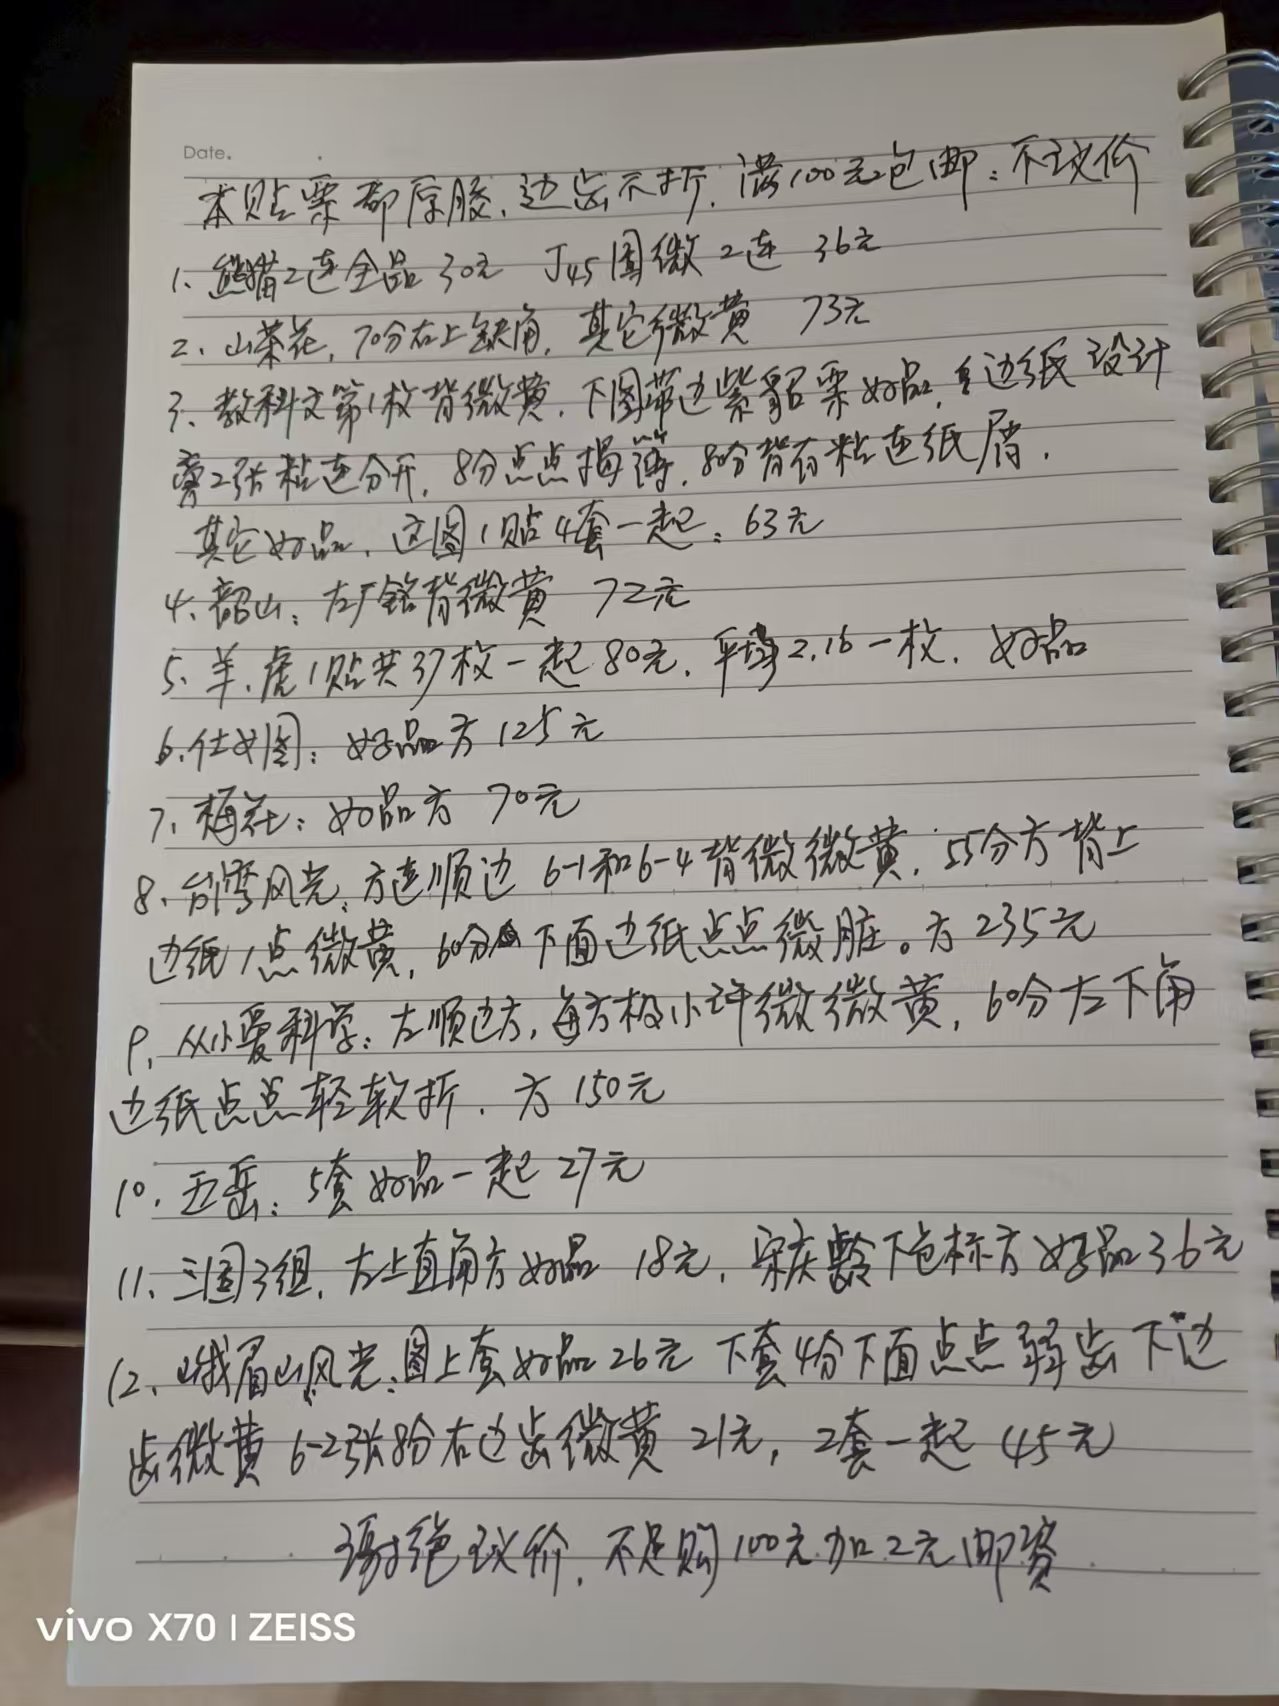 Date.
本贴票都原胶,边齿不折,满100元包邮:不议价
1、熊猫2连全品30元 J45国徽2连 36元
2、山茶花,70分右上缺角,其它微黄 73元
3、教科文第1枚背微黄,下图带边紫貂票好品,边纸设计
2张粘连分开,8分点点揭薄,80分背有粘连纸屑.
其它好品,这图1贴4套一起:63元
4、韶山:左厂铭背微黄 72元
5、羊、虎1贴共37枚一起80元,平均2.16一枚,好品
6、仕女图:好品方125元
7、梅花:好品方 70元
8、台湾风光:方连顺边 6-1和6-4背微微微黄,55分方背上
边纸1点微黄,60分下面边纸点点微脏。方235元
9、从小爱科学:左顺边方,每方极小许微微微黄,60分左下角
边纸点点轻软折.方150元
10、五岳:5套好品一起27元
11、三国3组,左上直角方好品 18元,宋庆龄下色标方好品36元
12、峨眉山风光:图上套好品26元 下套4分下面点点弱齿下边
齿微黄 6-2张8分右边齿微黄 21元,2套一起 45元
谢绝议价,不足购100元加2元邮资
vivo X70 | ZEISS